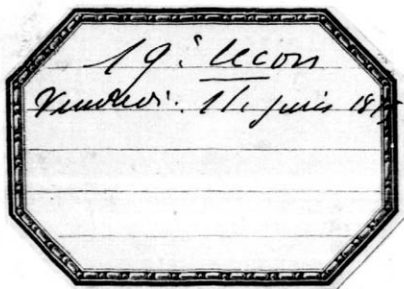 19e Lecon
Vendredi. 11. juin